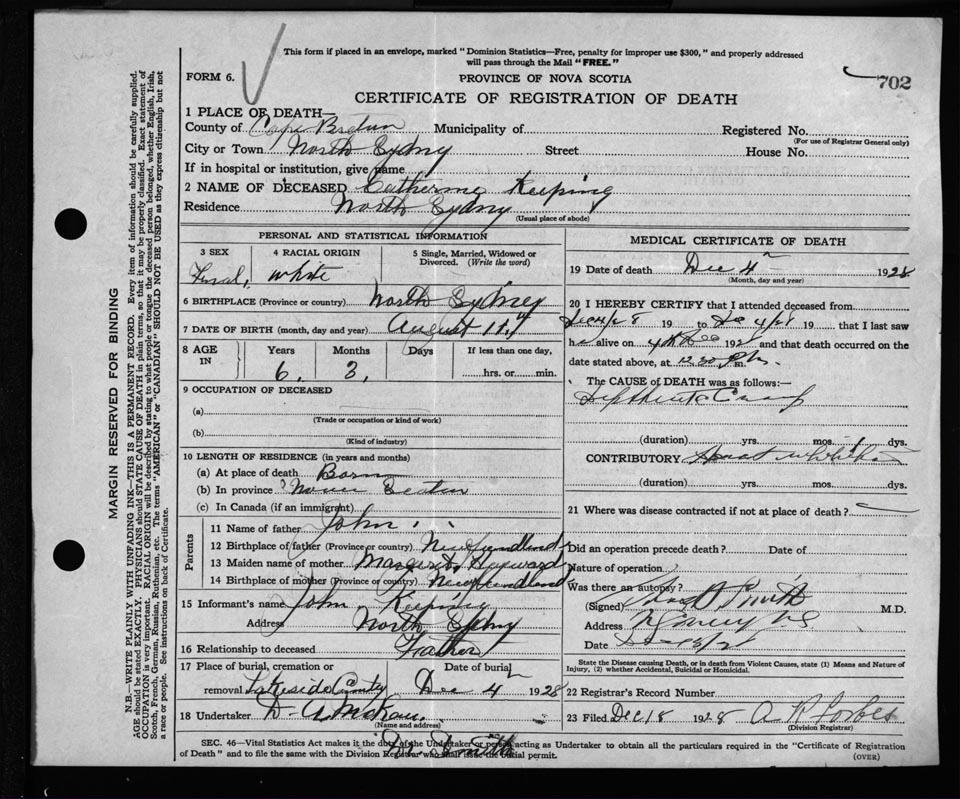 This form if placed in an envelope, marked "Dominion Statistics—Free, penalty for improper use $300," and properly addressed
will pass through the Mail "FREE."
FORM 6.
PROVINCE OF NOVA SCOTIA
702
CERTIFICATE OF REGISTRATION OF DEATH
1 PLACE OF DEATH—
County of Cape Breton Municipality of Registered No.
(For use of Registrar General only)
City or Town North Sydney Street House No.
If in hospital or institution, give name
2 NAME OF DECEASED Catherine Keeping
Residence North Sydney
(Usual place of abode)
PERSONAL AND STATISTICAL INFORMATION
3 SEX 4 RACIAL ORIGIN 5 Single, Married, Widowed or Divorced. (Write the word)
Femal, white
6 BIRTHPLACE (Province or country) North Sydney
7 DATE OF BIRTH (month, day and year) August 11th
8 AGE IN Years Months Days If less than one day,
6, 3, hrs. or min.
9 OCCUPATION OF DECEASED
(a)
(Trade or occupation or kind of work)
(b)
(Kind of industry)
10 LENGTH OF RESIDENCE (in years and months)
(a) At place of death Born
(b) In province Nova Scotia
(c) In Canada (if an immigrant)
Parents
11 Name of father John
12 Birthplace of father (Province or country) Newfundland
13 Maiden name of mother Margaret Hayward
14 Birthplace of mother (Province or country) Newfoundland
15 Informant's name John Keeping
Address North Sydney
16 Relationship to deceased Father
17 Place of burial, cremation or Date of burial
removal Lakeside Dec 4 1928
18 Undertaker
(Name and address)
Dr. Smith
MEDICAL CERTIFICATE OF DEATH
19 Date of death Dec 4 1928
(Month, day and year)
20 I HEREBY CERTIFY that I attended deceased from
19 to 19 that I last saw
h alive on 4 Dec 192 and that death occurred on the
date stated above, at 12.30 Pm.
The CAUSE OF DEATH was as follows:—
(duration) yrs. mos. 1 dys.
CONTRIBUTORY
(duration) yrs. mos. dys.
21 Where was disease contracted if not at place of death?
Did an operation precede death? Date of
Nature of operation
Was there an autopsy?
(Signed) Smith M.D.
Address
Date
State the Disease causing Death, or in death from Violent Causes, state (1) Means and Nature of
Injury, (2) whether Accidental, Suicidal or Homicidal.
22 Registrar's Record Number
23 Filed Dec 18 1928 A R Forbes
(Division Registrar)
SEC. 46—Vital Statistics Act makes it the duty of the Undertaker or person acting as Undertaker to obtain all the particulars required in the "Certificate of Registration
of Death" and to file the same with the Division Registrar who shall issue the burial permit.
(OVER)
MARGIN RESERVED FOR BINDING
N.B.—WRITE PLAINLY WITH UNFADING INK—THIS IS A PERMANENT RECORD. Every item of information should be carefully supplied.
AGE should be stated EXACTLY. PHYSICIANS should STATE CAUSE OF DEATH in plain terms, so that it may be properly classified. Exact statement of
OCCUPATION is very important. RACIAL ORIGIN will be described by stating to what people or tongue the deceased person belonged, whether English, Irish,
Scotch, French, German, Russian, Ruthenian, etc. The terms "AMERICAN" or "CANADIAN" SHOULD NOT BE USED as they express citizenship but not
a race or people. See instructions on back of Certificate.